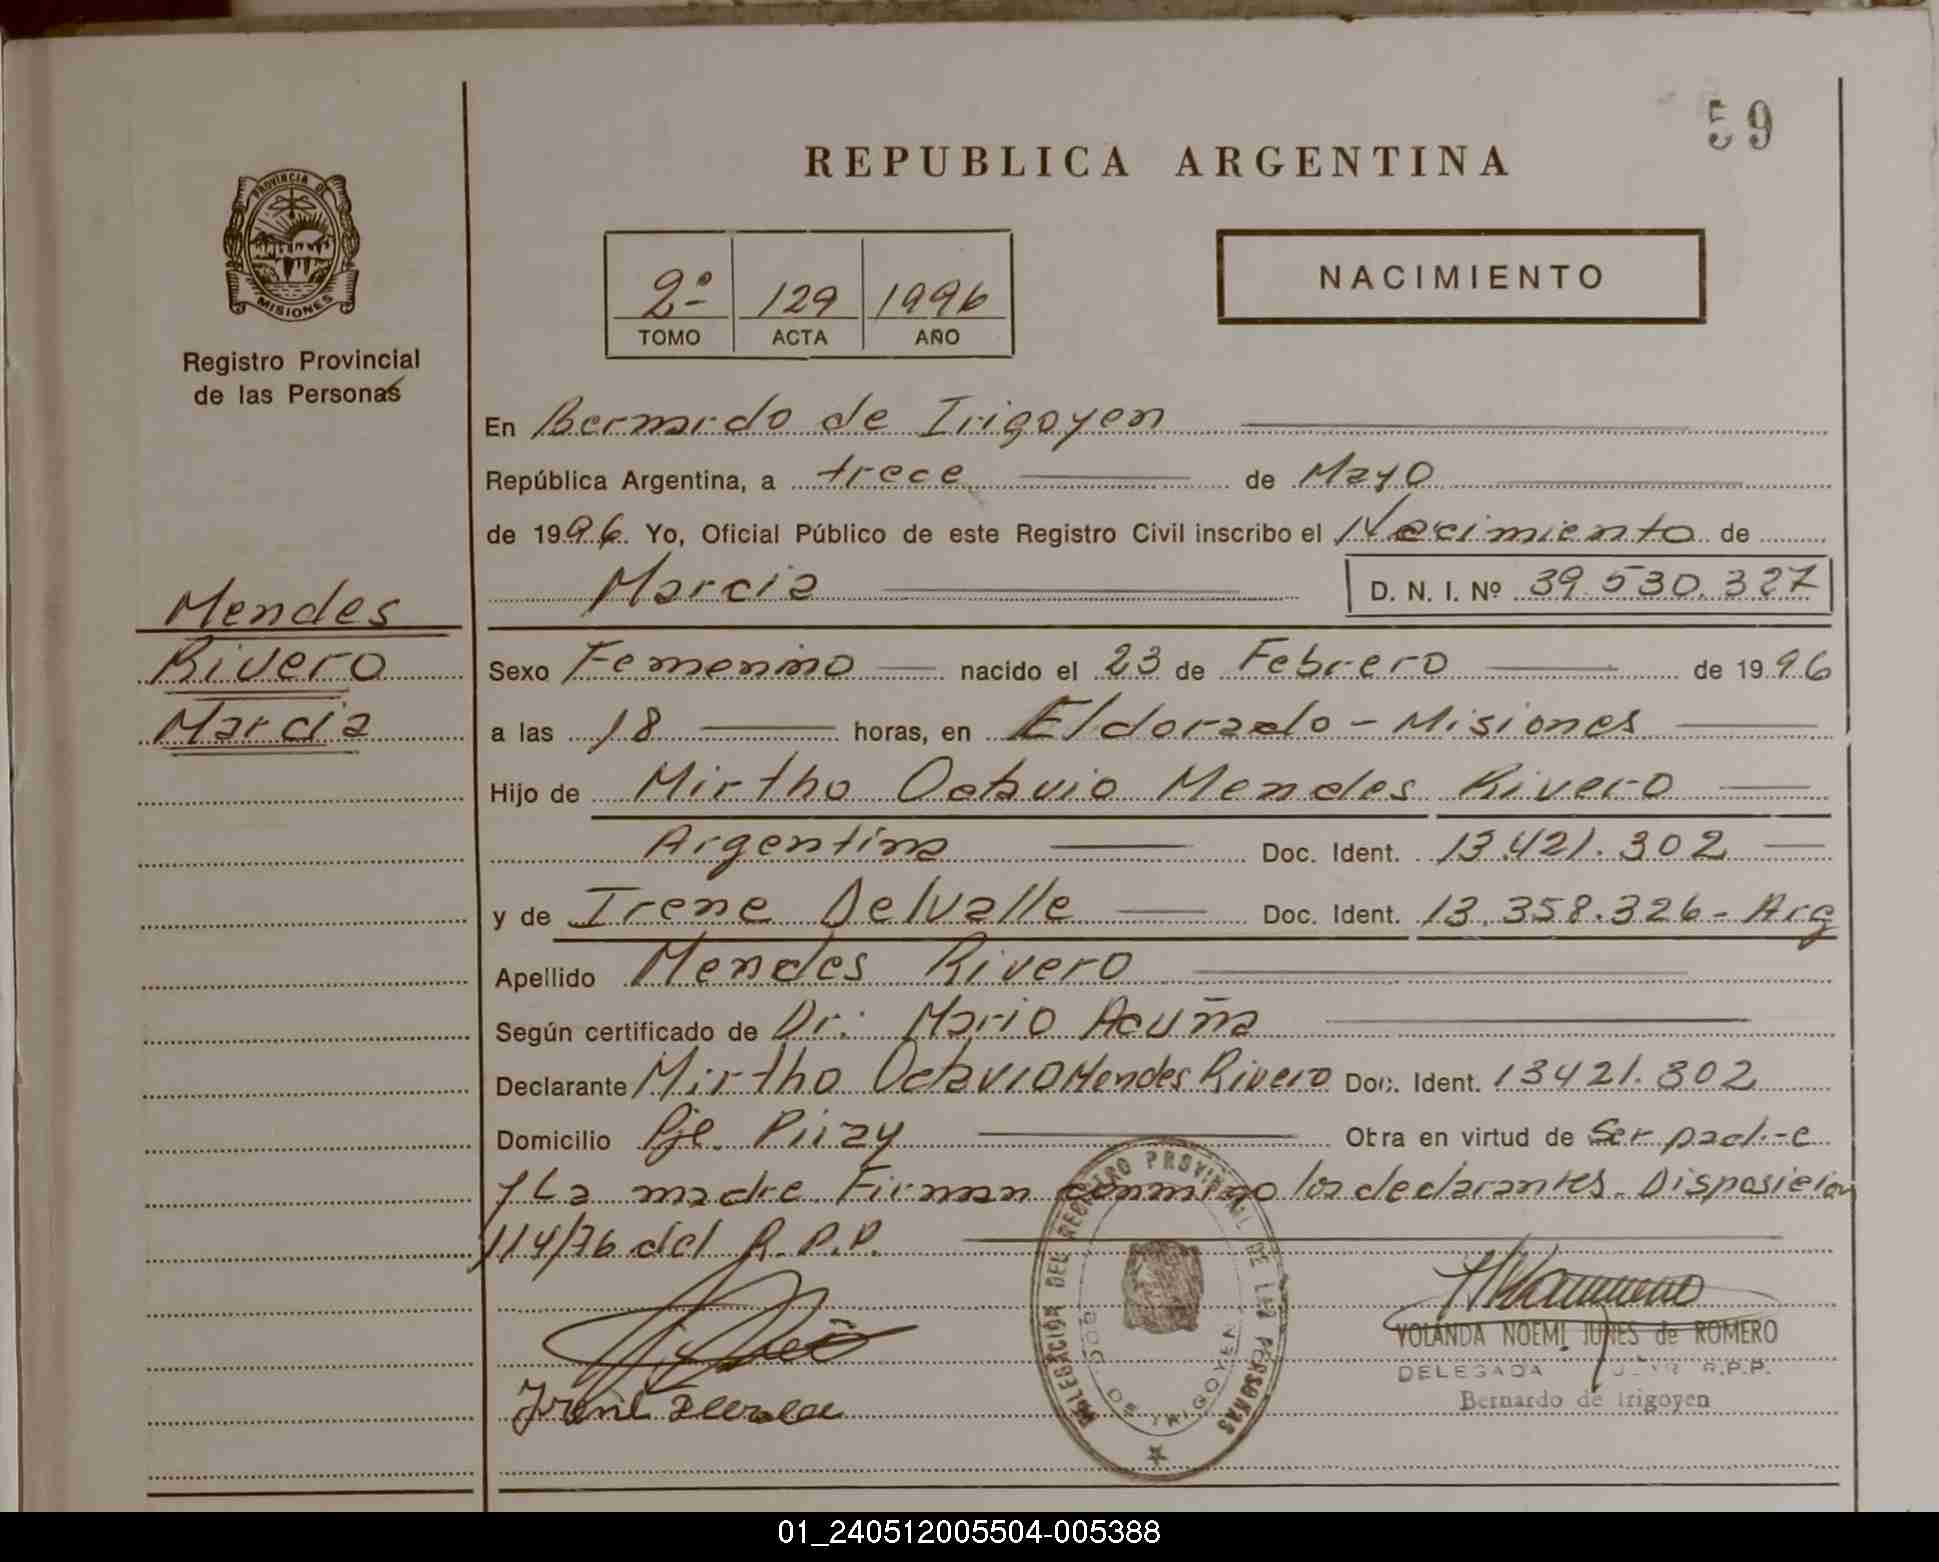 59
REPUBLICA ARGENTINA
PROVINCIA DE
MISIONES
Registro Provincial
de las Personas
2º 129 1996
TOMO ACTA AÑO
NACIMIENTO
En Bernardo de Irigoyen
República Argentina, a trece de Mayo
de 1996. Yo, Oficial Público de este Registro Civil inscribo el Nacimiento de
Marcia D. N. I. Nº 39.530.327
Mendes
Rivero
Marcia
Sexo Femenino nacido el 23 de Febrero de 1996
a las 18 horas, en Eldorado - Misiones
Hijo de Mirtho Octavio Mendes Rivero
Argentina Doc. Ident. 13.421.302
y de Irene Delvalle Doc. Ident. 13.358.326 - Arg
Apellido Mendes Rivero
Según certificado de Dr. Mario Acuña
Declarante Mirtho Octavio Mendes Rivero Doc. Ident. 13421.302
Domicilio Pje. Piray Obra en virtud de Ser padre
y La madre Firman conmigo los declarantes. Disposición
114/76 del R.P.P.
DELEGACIÓN DEL REGISTRO PROVINCIAL DE LAS PERSONAS
BDO. DE IRIGOYEN
YOLANDA NOEMI JUNES de ROMERO
DELEGADA R.P.P.
Bernardo de Irigoyen
01_240512005504-005388